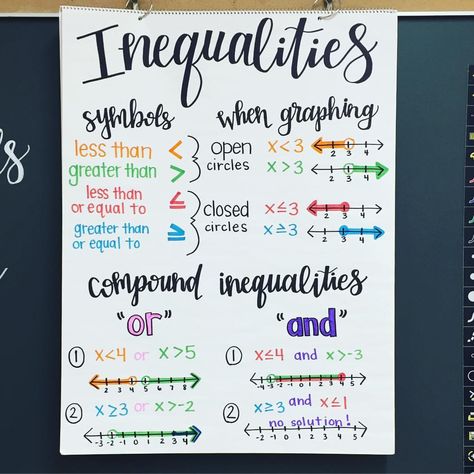 Inequalities
symbols
less than <
greater than >
less than
or equal to ≤
greater than
or equal to ≥
when graphing
open
circles
x<3
2 3 4
x>3
2 3 4
closed
circles
x≤3
2 3 4
x≥3
2 3 4
compound inequalities
"or"
1 x<4 or x>5
2 3 4 5 6 7 8
2 x≥3 or x>-2
-3 -2 -1 0 1 2 3 4
"and"
1 x≤4 and x>-3
-4 -3 -2 -1 0 1 2 3 4 5
2 x≥3 and x≤1
no solution!
-2 -1 0 1 2 3 4 5